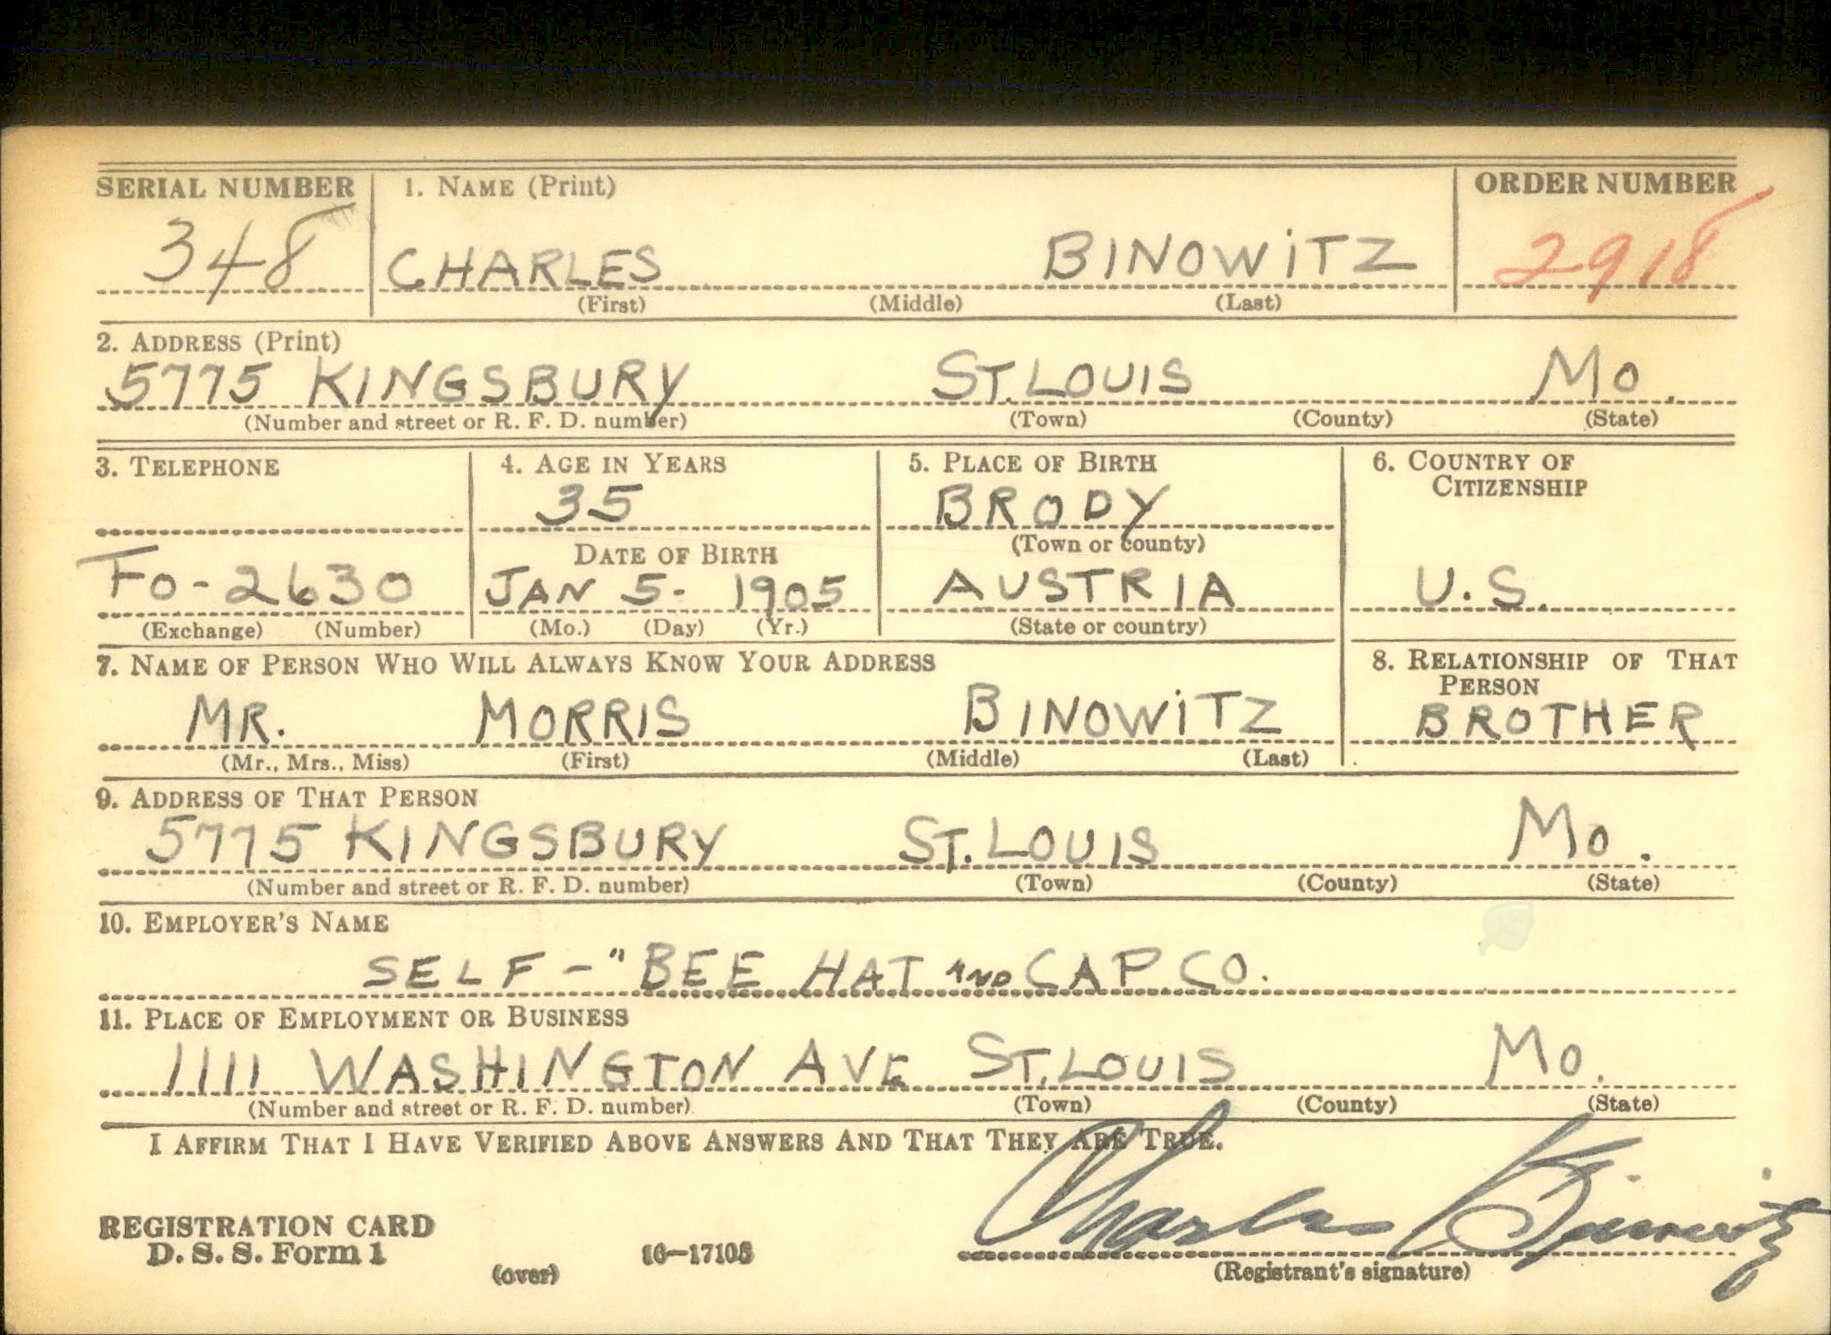 SERIAL NUMBER 1. NAME (Print) ORDER NUMBER
348 CHARLES BINOWITZ 2918
(First) (Middle) (Last)
2. ADDRESS (Print)
5775 KINGSBURY ST. LOUIS MO.
(Number and street or R. F. D. number) (Town) (County) (State)
3. TELEPHONE 4. AGE IN YEARS 5. PLACE OF BIRTH 6. COUNTRY OF
CITIZENSHIP
35 BRODY
DATE OF BIRTH (Town or county)
FO-2630 JAN 5- 1905 AUSTRIA U.S.
(Exchange) (Number) (Mo.) (Day) (Yr.) (State or country)
7. NAME OF PERSON WHO WILL ALWAYS KNOW YOUR ADDRESS 8. RELATIONSHIP OF THAT
PERSON
MR. MORRIS BINOWITZ BROTHER
(Mr., Mrs., Miss) (First) (Middle) (Last)
9. ADDRESS OF THAT PERSON
5775 KINGSBURY ST. LOUIS MO.
(Number and street or R. F. D. number) (Town) (County) (State)
10. EMPLOYER'S NAME
SELF - "BEE HAT AND CAP CO.
11. PLACE OF EMPLOYMENT OR BUSINESS
1111 WASHINGTON AVE ST. LOUIS MO.
(Number and street or R. F. D. number) (Town) (County) (State)
I AFFIRM THAT I HAVE VERIFIED ABOVE ANSWERS AND THAT THEY ARE TRUE.
Charles Binowitz
REGISTRATION CARD
D. S. S. Form 1 (over) 16-17105 (Registrant's signature)